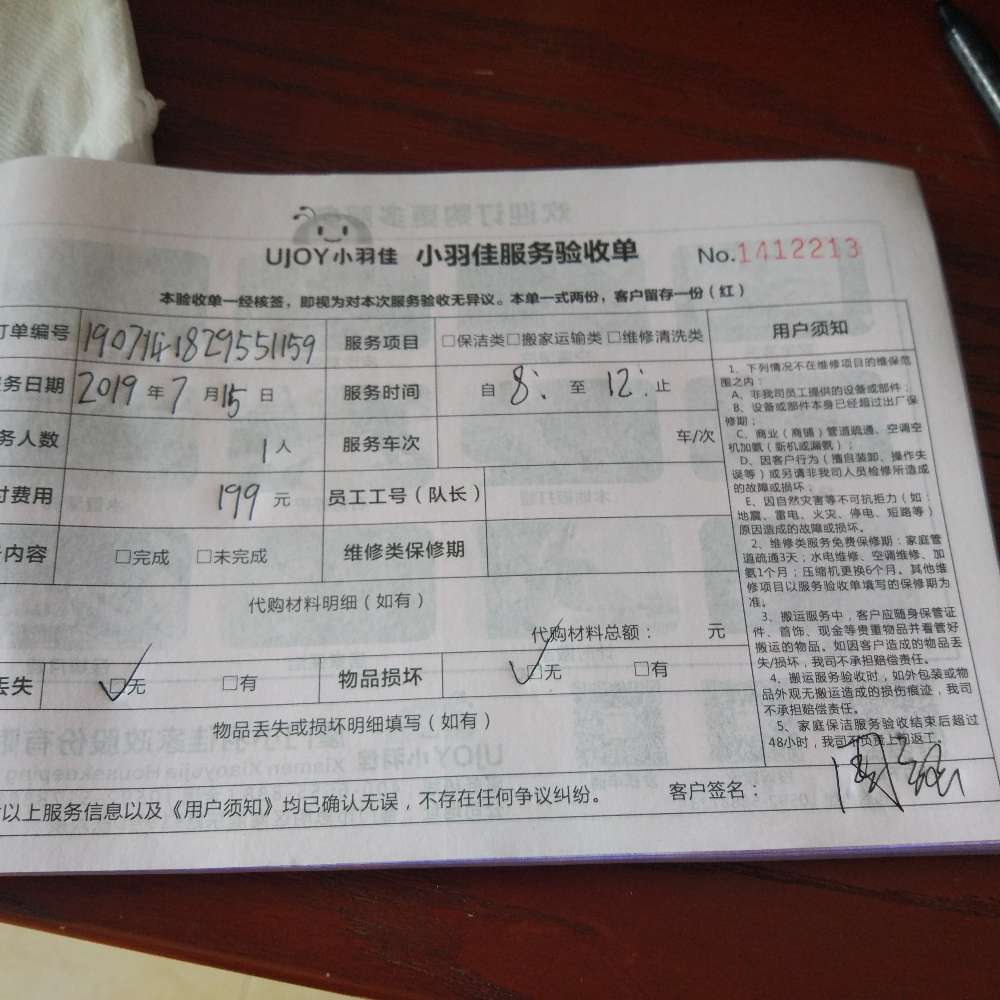 UJOY小羽佳 小羽佳服务验收单 No.1412213
本验收单一经核签，即视为对本次服务验收无异议。本单一式两份，客户留存一份（红）
订单编号 1907141829551159 服务项目 □保洁类□搬家运输类 □维修清洗类 用户须知
服务日期 2019 年 7 月 15 日 服务时间 自 8: 至 12: 止
务人数 1 人 服务车次 车/次
付费用 199 元 员工工号（队长）
内容 □完成 □未完成 维修类保修期
代购材料明细（如有）
代购材料总额： 元
丢失 ☑无 □有 物品损坏 ☑无 □有
物品丢失或损坏明细填写（如有）
以上服务信息以及《用户须知》均已确认无误，不存在任何争议纠纷。 客户签名：
1、下列情况不在维修项目的维保范
围之内：
A、非我司员工提供的设备或部件；
B、设备或部件本身已经超过出厂保
修期；
C、商业（商铺）管道疏通、空调空
机加氨（新机或漏氨）；
D、因客户行为（擅自装卸、操作失
误等）或另请非我司人员检修所造成
的故障或损坏；
E、因自然灾害等不可抗拒力（如：
地震、雷电、火灾、停电、短路等）
原因造成的故障或损坏。
2、维修类服务免费保修期：家庭管
道疏通3天；水电维修、空调维修、加
氨1个月；压缩机更换6个月。其他维
修项目以服务验收单填写的保修期为
准。
3、搬运服务中，客户应随身保管证
件、首饰、现金等贵重物品并看管好
搬运的物品。如因客户造成的物品丢
失/损坏，我司不承担赔偿责任。
4、搬运服务验收时，如外包装或物
品外观无搬运造成的损伤痕迹，我司
不承担赔偿责任。
5、家庭保洁服务验收结束后超过
48小时，我司不负责上门返工。